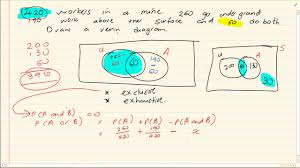 420 workers in a mine. 260 go underground
190 work above the surface and 60 do both
Draw a venn diagram.
200
130
60
390
U A
60
130
U A
200 60 130
30
* exclusive
* exhaustive
P(A and B) = 0
P(A or B) = P(A) + P(B) - P(A and B)
= 260/420 + 190/420 - x
S